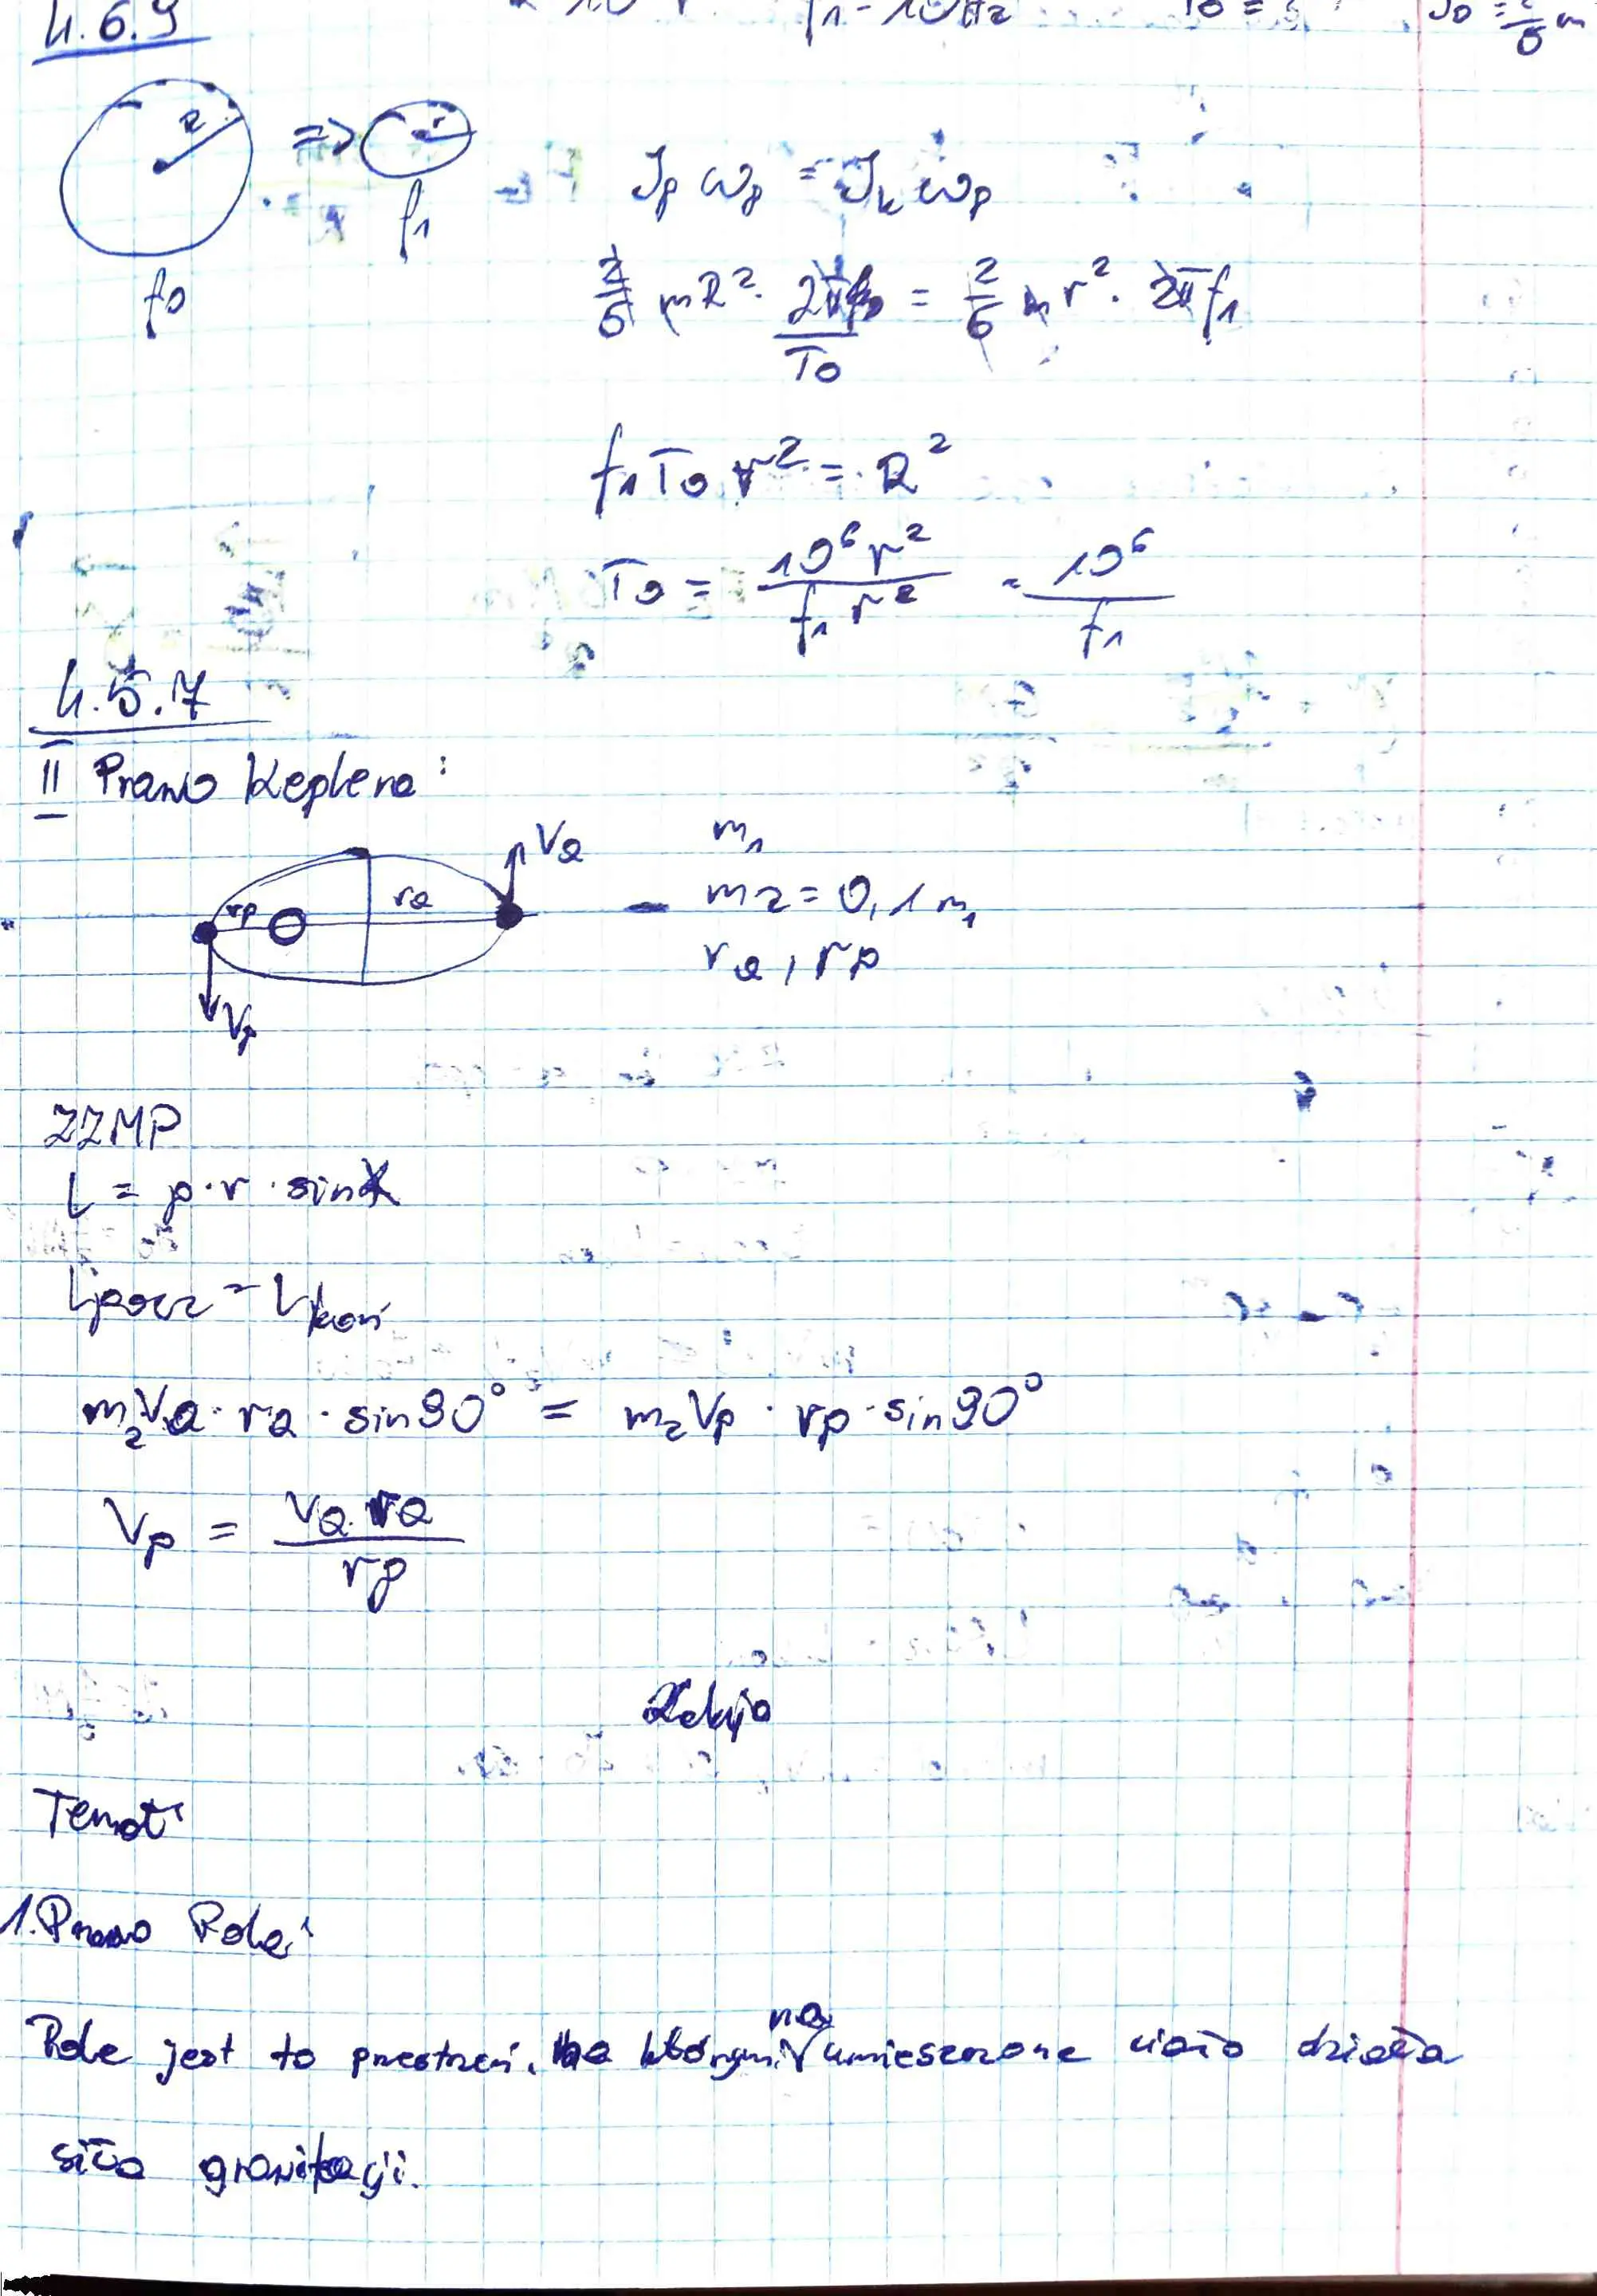 4.6.9
f₁ = 10 Hz
R
r
=>
f₀
f₁
Jp ωp = Jk ωp
2/5 mR² · 2π/T₀ = 2/5 mr² · 2πf₁
f₁ T₀ r² = R²
T₀ = 10⁶ r² / f₁ r² = 10⁶ / f₁
4.5.7
II Prawo Keplera:
Va
rp
ra
Vp
m₁
m₂ = 0,1 m₁
ra, rp
ZZMP
L = p · r · sinα
Lpocz = Lkoń
m₂Va · ra · sin90° = m₂Vp · rp · sin90°
Vp = Va · ra / rp
Lekcja
Temat:
1. Prawo Pola:
Pole jest to przestrzeń, na którymi na umieszczone ciało działa
siła grawitacji.